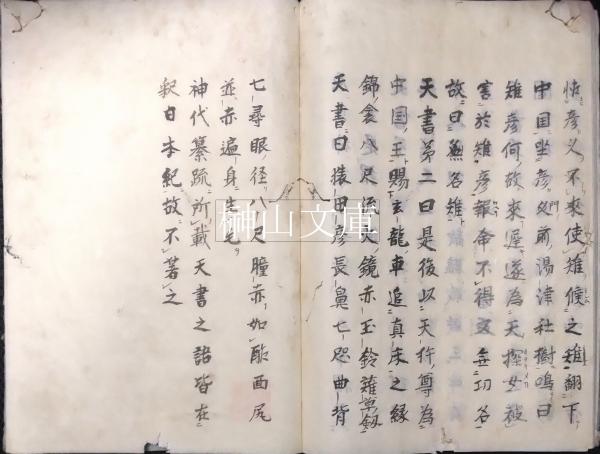 怯彦又不來使雉候之雉翻下
中国坐彦之門前湯津杜樹鳴曰
雉彦何故來遲遂為天探女被
害於雉彦報命不得又無功名
故曰無名雉
天書第二曰是後以天杵尊為
中国王賜玄龍車追真床之縁
錦衾八尺流大鏡赤玉鈴薙草劔
天書曰猿田彦長鼻七咫曲背
七尋眼径八尺瞳赤如酡面尻
並赤遍身生毛
神代纂疏所載天書之語皆在
釈日本紀故不著之
榊山文庫